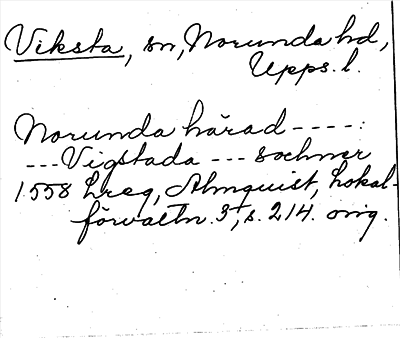 Viksta, sn, Norunda hd,
Upps. l.
Norunda härad ----:
--- Vigstada --- sochner
1558 Lreg, Almquist, Lokal-
förvaltn. 3, s. 214. orig.